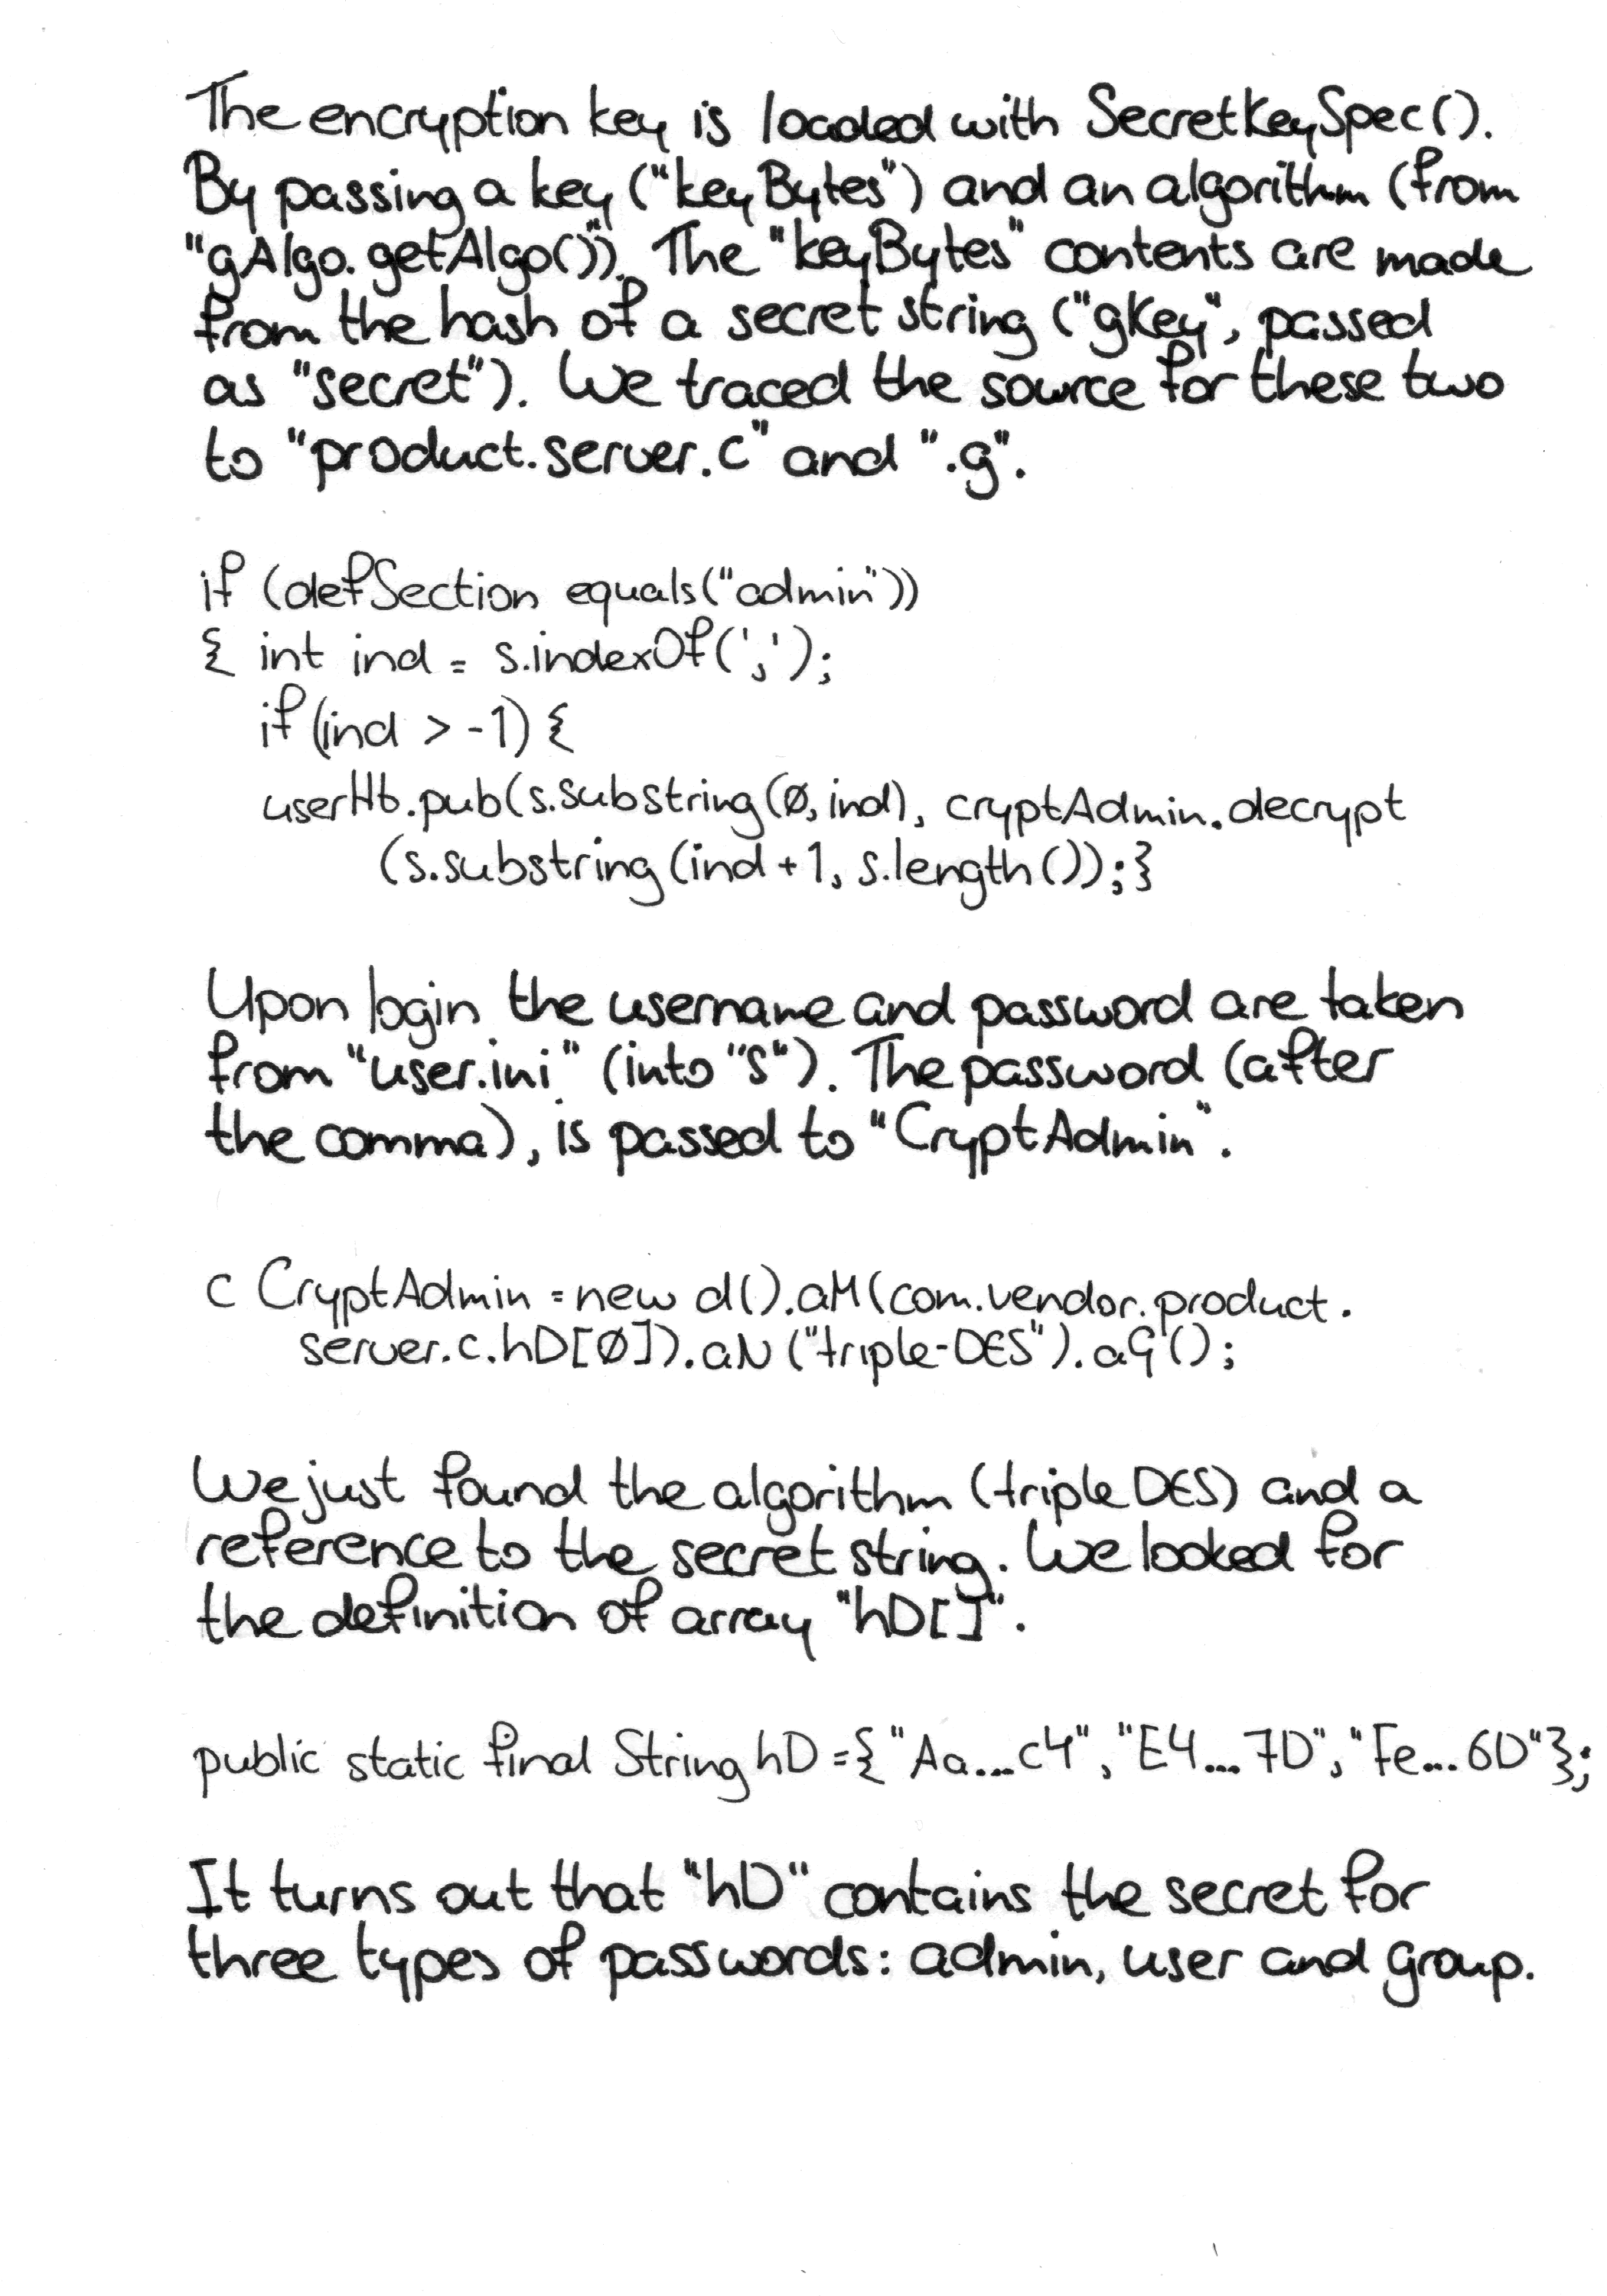 The encryption key is loaded with SecretKeySpec().
By passing a key ("keyBytes") and an algorithm (from
"gAlgo.getAlgo()"). The "keyBytes" contents are made
from the hash of a secret string ("gKey", passed
as "secret"). We traced the source for these two
to "product.server.c" and ".g".
if (defSection equals("admin"))
{ int ind = s.indexOf(',');
if (ind > -1) {
userHt.pub(s.substring(0, ind), cryptAdmin.decrypt
(s.substring(ind+1, s.length());}
Upon login the username and password are taken
from "user.ini" (into "s"). The password (after
the comma), is passed to "CryptAdmin".
c CryptAdmin = new d().aM(com.vendor.product.
server.c.hD[0]).aN("triple-DES").aG();
We just found the algorithm (triple DES) and a
reference to the secret string. We looked for
the definition of array "hD[]".
public static final String hD={"Aa...c4","E4...7D","Fe...6D"};
It turns out that "hD" contains the secret for
three types of passwords: admin, user and group.